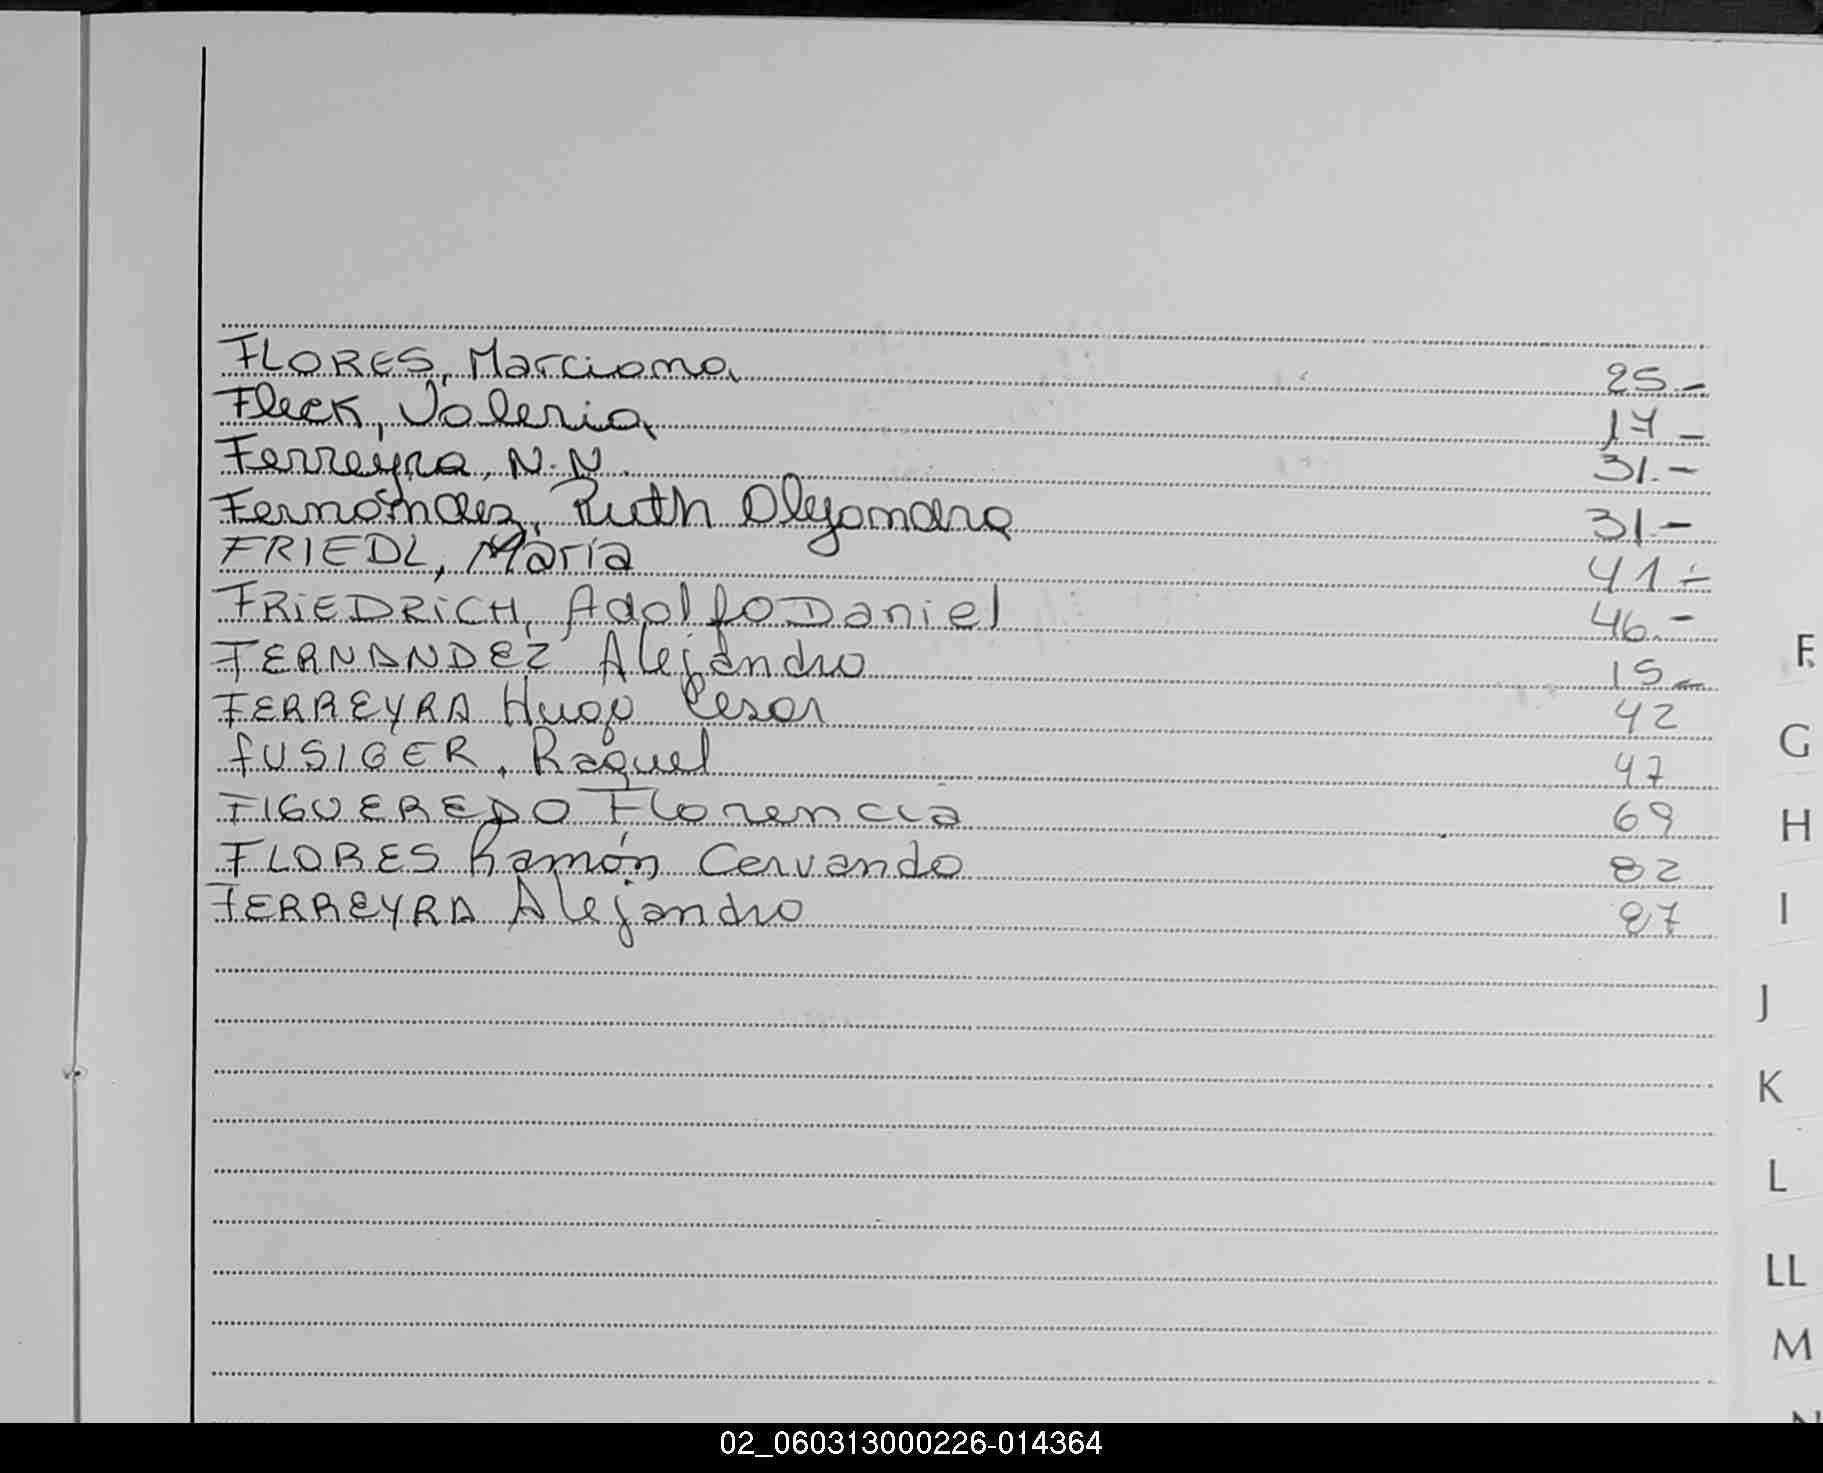 FLORES, Marciana 25.-
Fleck, Valeria 17 -
Ferreyra, N.N. 31.-
Fernández, Ruth Alejandra 31.-
FRIEDL, María 41.-
FRIEDRICH, Adolfo Daniel 46.-
FERNANDEZ Alejandro 15 -
FERREYRA Hugo Cesar 42
FUSIGER, Raquel 47
FIGUEREDO Florencia 69
FLORES Ramón Cervando 82
FERREYRA Alejandro 87
F
G
H
I
J
K
L
LL
M
N
02_060313000226-014364